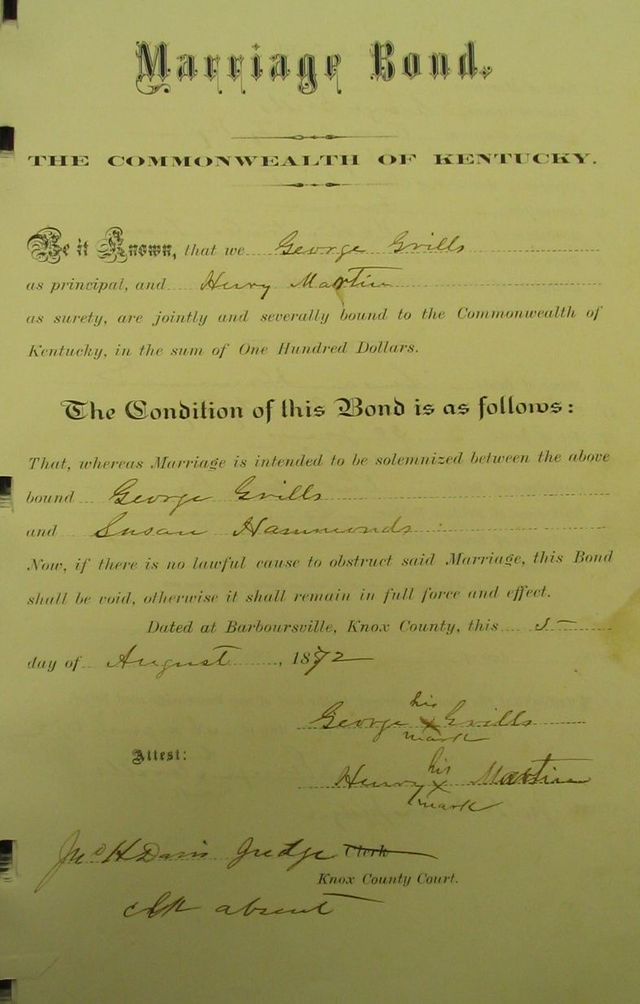 Marriage Bond.
THE COMMONWEALTH OF KENTUCKY.
Be it Known, that we George Grills
as principal, and Henry Martin
as surety, are jointly and severally bound to the Commonwealth of
Kentucky, in the sum of One Hundred Dollars.
The Condition of this Bond is as follows:
That, whereas Marriage is intended to be solemnized between the above
bound George Grills
and Susan Hammonds
Now, if there is no lawful cause to obstruct said Marriage, this Bond
shall be void, otherwise it shall remain in full force and effect.
Dated at Barboursville, Knox County, this 5
day of August, 1872
his
George X Grills
mark
Attest:
his
Henry X Martin
mark
Davis Judge Clerk
Knox County Court.
Clk absent